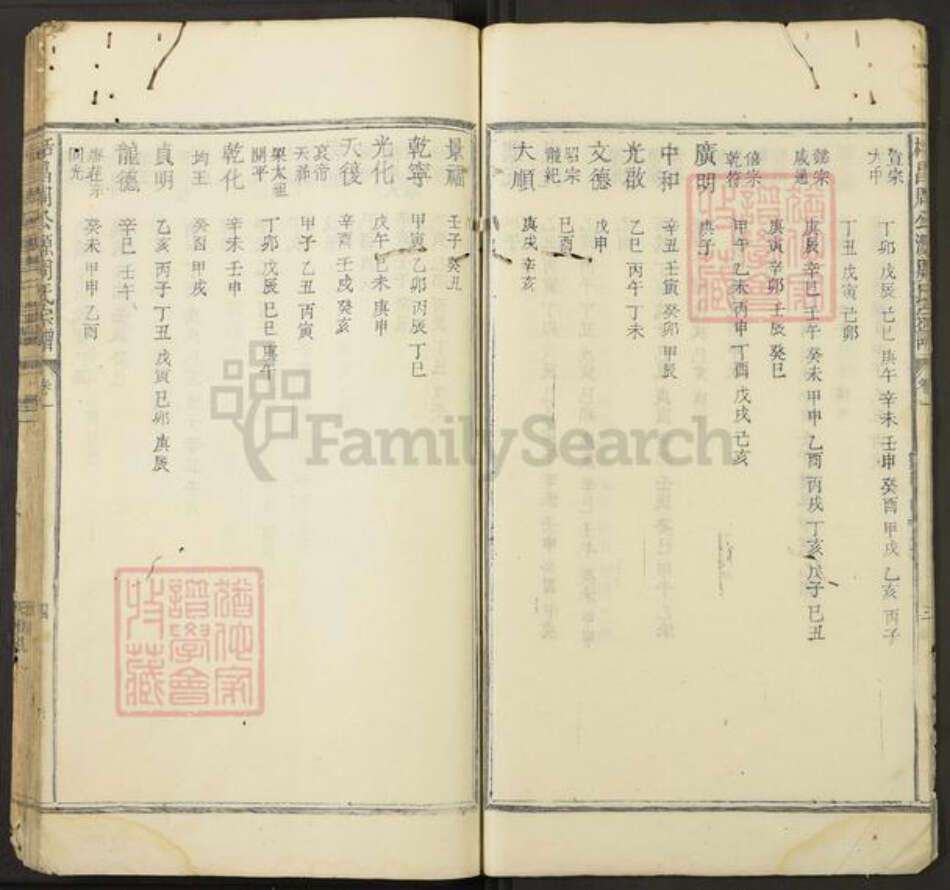 宣宗
大中
丁卯 戊辰 己巳 庚午 辛未 壬申 癸酉 甲戌 乙亥 丙子
丁丑 戊寅 己卯
懿宗
咸通
庚辰 辛巳 壬午 癸未 甲申 乙酉 丙戌 丁亥 戊子 巳丑
庚寅 辛卯 壬辰 癸巳
僖宗
乾符
甲午 乙未 丙申 丁酉 戊戌 己亥
廣明 庚子
中和 辛丑 壬寅 癸卯 甲辰
光啟 乙巳 丙午 丁未
文德 戊申
昭宗
龍紀
巳酉
大順 庚戌 辛亥
景福 壬子 癸丑
乾寧 甲寅 乙卯 丙辰 丁巳
光化 戊午 巳未 庚申
天復 辛酉 壬戌 癸亥
哀帝
天祐
甲子 乙丑 丙寅
梁太祖
開平
丁卯 戊辰 巳巳 庚午
乾化 辛未 壬申
均王 癸酉 甲戌
貞明 乙亥 丙子 丁丑 戊寅 巳卯 庚辰
龍德 辛巳 壬午
唐莊宗
同光
癸未 甲申 乙酉
卷一
三
四
猶他家
譜學會
收藏
FamilySearch